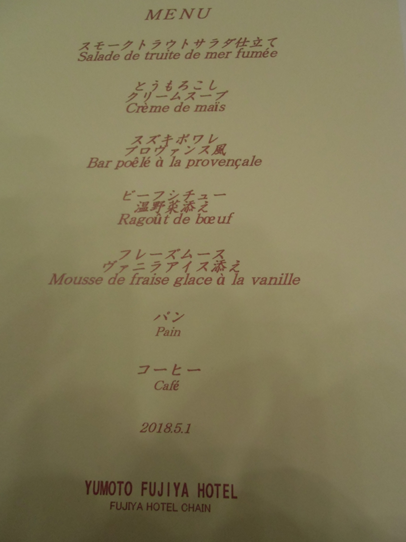 MENU
スモークトラウトサラダ仕立て
Salade de truite de mer fumée
とうもろこし
クリームスープ
Crème de maïs
スズキポワレ
プロヴァンス風
Bar poêlé à la provençale
ビーフシチュー
温野菜添え
Ragoût de bœuf
フレーズムース
ヴァニラアイス添え
Mousse de fraise glace à la vanille
パン
Pain
コーヒー
Café
2018.5.1
YUMOTO FUJIYA HOTEL
FUJIYA HOTEL CHAIN